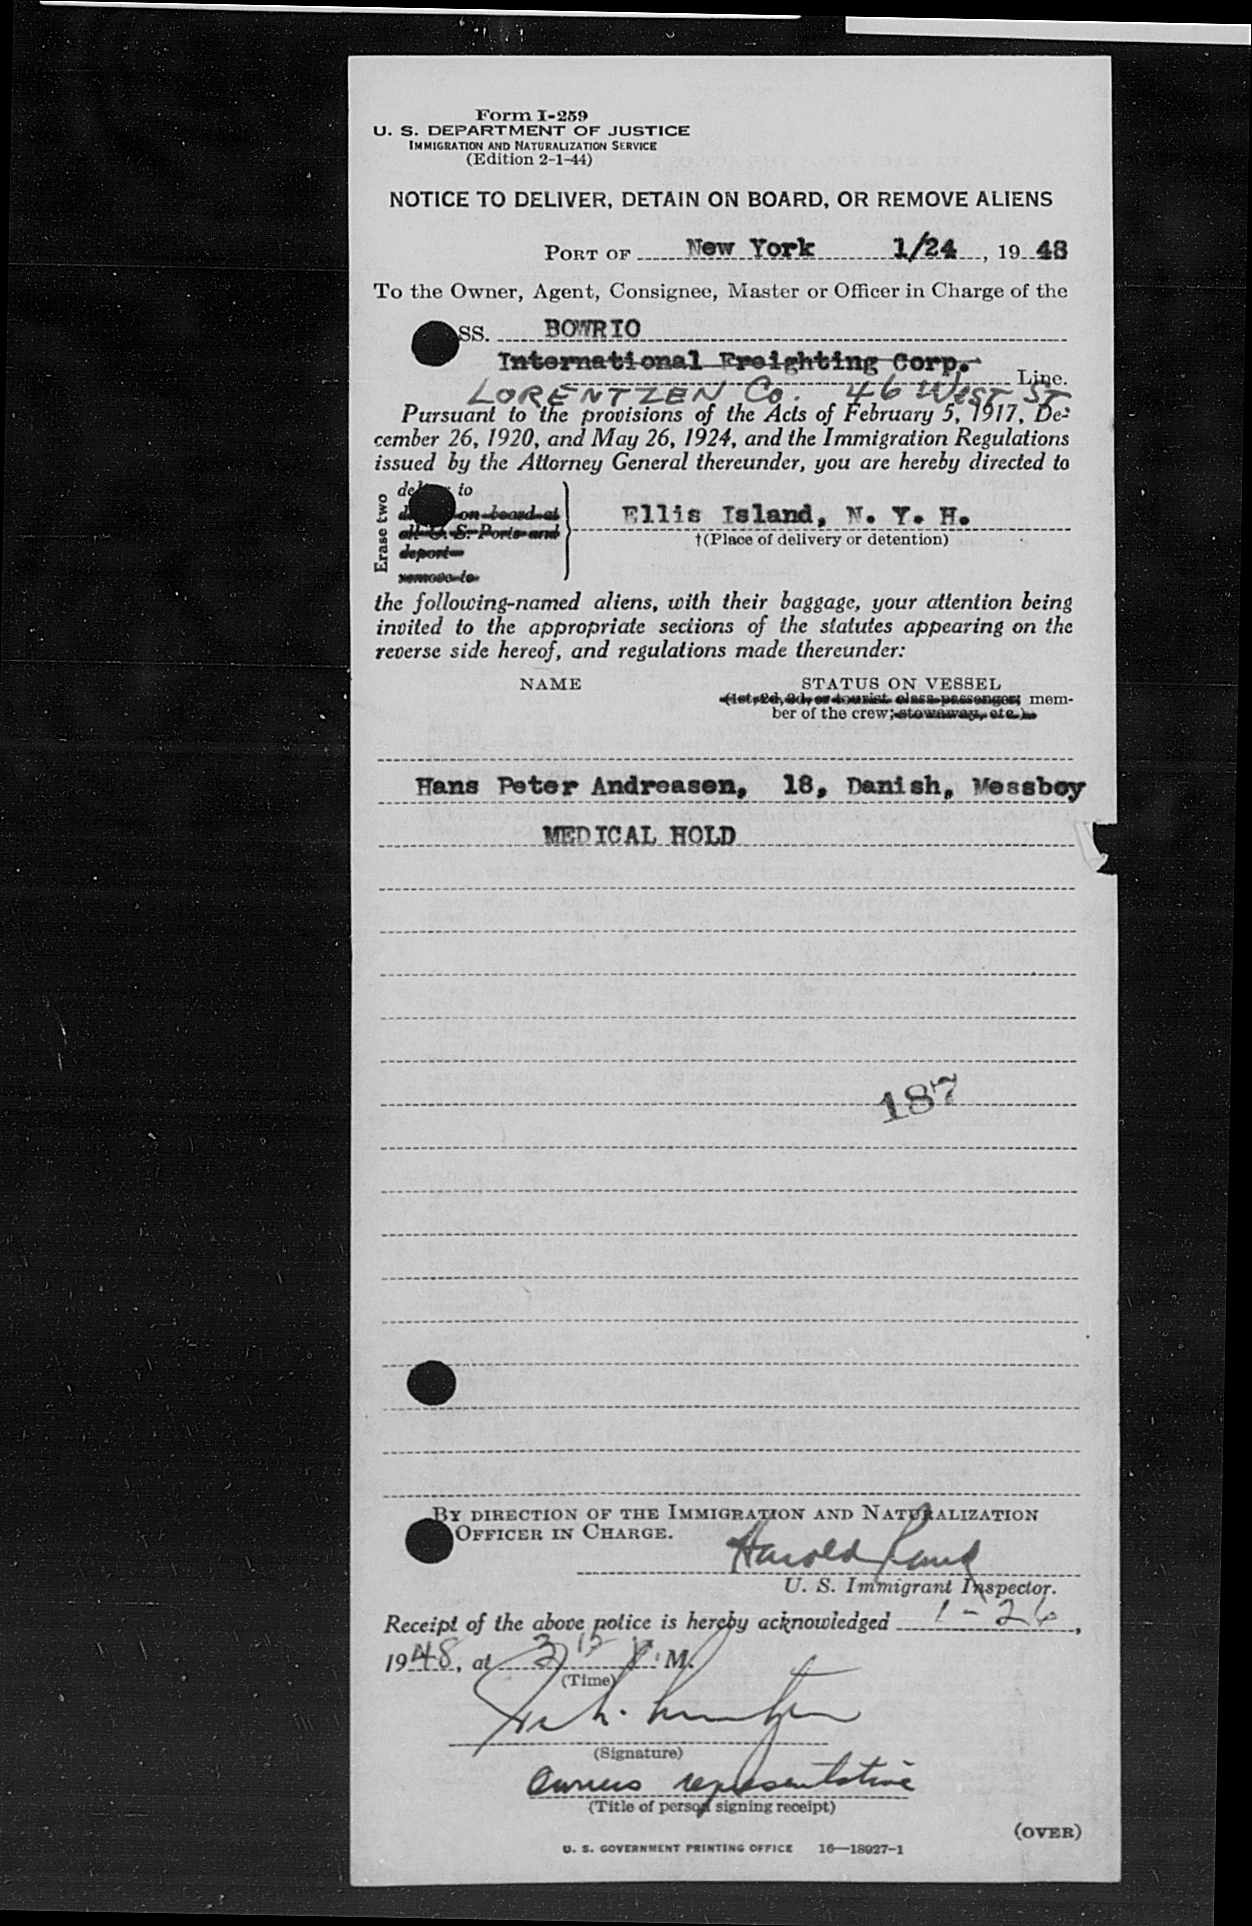 Form I-259
U. S. DEPARTMENT OF JUSTICE
IMMIGRATION AND NATURALIZATION SERVICE
(Edition 2-1-44)
NOTICE TO DELIVER, DETAIN ON BOARD, OR REMOVE ALIENS
PORT OF New York 1/24, 1948
To the Owner, Agent, Consignee, Master or Officer in Charge of the
SS. BOWRIO
International Freighting Corp.
LORENTZEN Co. 46 West ST Line.
Pursuant to the provisions of the Acts of February 5, 1917, De-
cember 26, 1920, and May 26, 1924, and the Immigration Regulations
issued by the Attorney General thereunder, you are hereby directed to
Erase two
to
on board at
all U. S. Ports and
deport
remove to
Ellis Island, N. Y. H.
†(Place of delivery or detention)
the following-named aliens, with their baggage, your attention being
invited to the appropriate sections of the statutes appearing on the
reverse side hereof, and regulations made thereunder:
NAME STATUS ON VESSEL
(1st, 2d, 3d, or tourist class passenger; mem-
ber of the crew; stowaway, etc.)
Hans Peter Andreasen, 18, Danish, Messboy
MEDICAL HOLD
187
BY DIRECTION OF THE IMMIGRATION AND NATURALIZATION
OFFICER IN CHARGE.
Harold
U. S. Immigrant Inspector.
Receipt of the above notice is hereby acknowledged 1-26,
1948, at 2 15 P. M.
(Time)
(Signature)
Owners representative
(Title of person signing receipt)
(OVER)
U. S. GOVERNMENT PRINTING OFFICE 16—18927-1